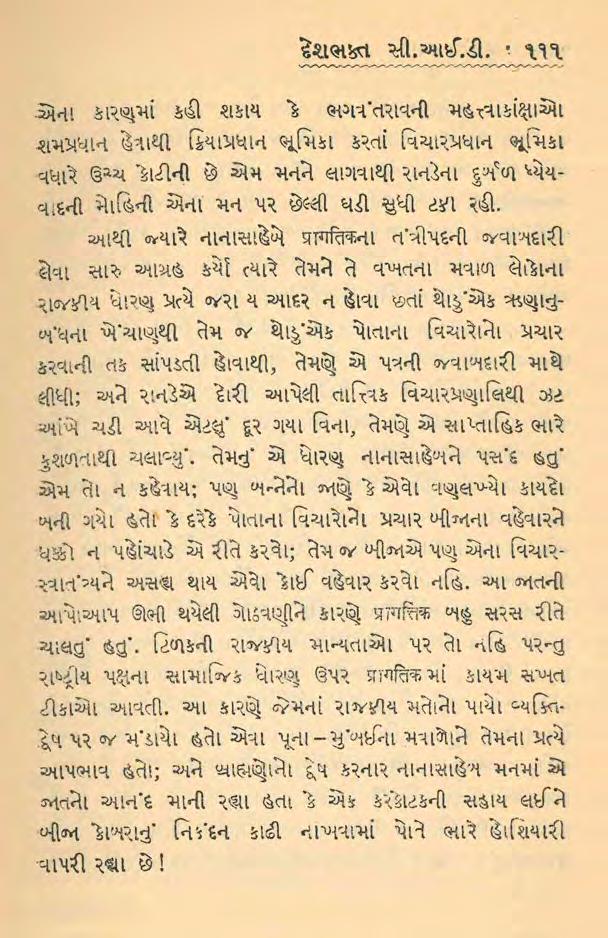 દેશભક્ત સી.આઈ.ડી. : ૧૧૧
એના કારણમાં કહી શકાય કે ભગવંતરાવની મહત્ત્વાકાંક્ષાઓ
શમપ્રધાન હેવાથી ક્રિયાપ્રધાન ભૂમિકા કરતાં વિચારપ્રધાન ભૂમિકા
વધારે ઉચ્ચ કોટીની છે એમ મનને લાગવાથી રાનડેના દુર્બળ ધ્યેય-
વાદની મોહિની એના મન પર છેલ્લી ઘડી સુધી ટકા રહી.
આથી જ્યારે નાનાસાહેબે प्रागतिकના તંત્રીપદની જવાબદારી
લેવા સારુ આગ્રહ કર્યો ત્યારે તેમને તે વખતના મવાળ લોકોના
રાજકીય ધોરણ પ્રત્યે જરા ય આદર ન હોવા છતાં થોડુંએક ઋણાનુ-
બંધના ખેંચાણથી તેમ જ થોડુંએક પોતાના વિચારોનો પ્રચાર
કરવાની તક સાંપડતી હોવાથી, તેમણે એ પત્રની જવાબદારી માથે
લીધી; અને રાનડેએ દોરી આપેલી તાત્ત્વિક વિચારપ્રણાલિથી ઝટ
આંખે ચડી આવે એટલું દૂર ગયા વિના, તેમણે એ સાપ્તાહિક ભારે
કુશળતાથી ચલાવ્યું. તેમનું એ ધોરણ નાનાસાહેબને પસંદ હતું
એમ તો ન કહેવાય; પણ બન્નેનો જાણે કે એવો વણલખ્યો કાયદો
બની ગયો હતો કે દરેકે પોતાના વિચારોનો પ્રચાર બીજાના વહેવારને
ધક્કો ન પહોંચાડે એ રીતે કરવો; તેમ જ બીજાએ પણ એના વિચાર-
સ્વાતંત્ર્યને અસહ્ય થાય એવો કોઈ વહેવાર કરવો નહિ. આ જાતની
આપોઆપ ઊભી થયેલી ગોઠવણીને કારણે प्रागतिक બહુ સરસ રીતે
ચાલતું હતું. ટિળકની રાજકીય માન્યતાઓ પર તો નહિ પરન્તુ
રાષ્ટ્રીય પક્ષના સામાજિક ધોરણ ઉપર प्रागतिकમાં કાયમ સખત
ટીકાઓ આવતી. આ કારણે જેમનાં રાજકીય મતોનો પાયો વ્યક્તિ-
દ્વેષ પર જ મંડાયો હતો એવા પૂના – મુંબઈના મવાળોને તેમના પ્રત્યે
આપભાવ હતો; અને બ્રાહ્મણોનો દ્વેષ કરનાર નાનાસાહેબ મનમાં એ
જાતનો આનંદ માની રહ્યા હતા કે એક કરકોટકની સહાય લઈને
બીજા કોબરાનું નિકંદન કાઢી નાખવામાં પોતે ભારે હોશિયારી
વાપરી રહ્યા છે!